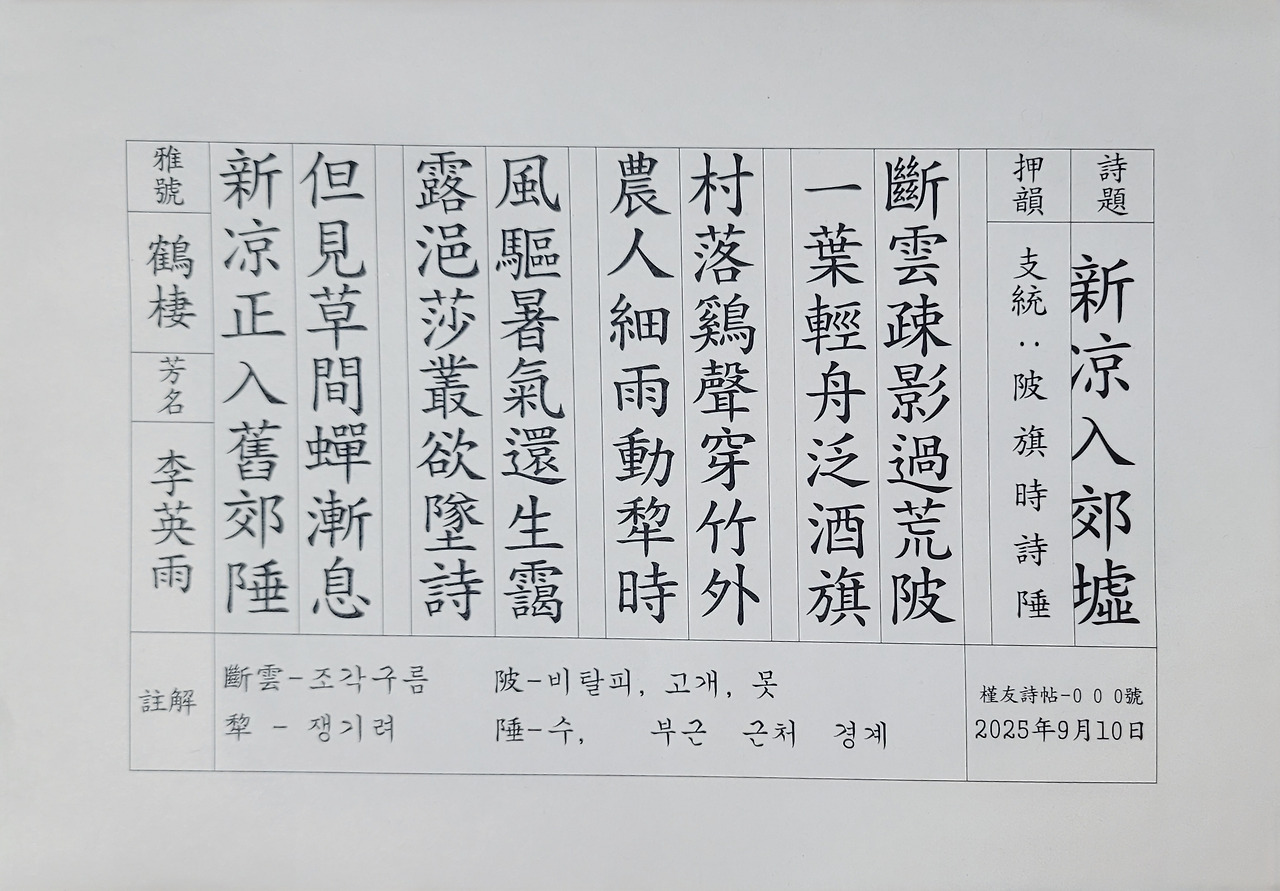 詩題
新凉入郊墟
押韻
支統：陂旗時詩陲
斷雲疎影過荒陂
一葉輕舟泛酒旗
村落鷄聲穿竹外
農人細雨動犂時
風驅暑氣還生靄
露浥莎叢欲墜詩
但見草間蟬漸息
新凉正入舊郊陲
雅號
鶴棲
芳名
李英雨
註解
斷雲-조각구름 陂-비탈피, 고개, 못
犂 - 쟁기려 陲-수, 부근 근처 경계
槿友詩帖-0 0 0號
2025年9月10日